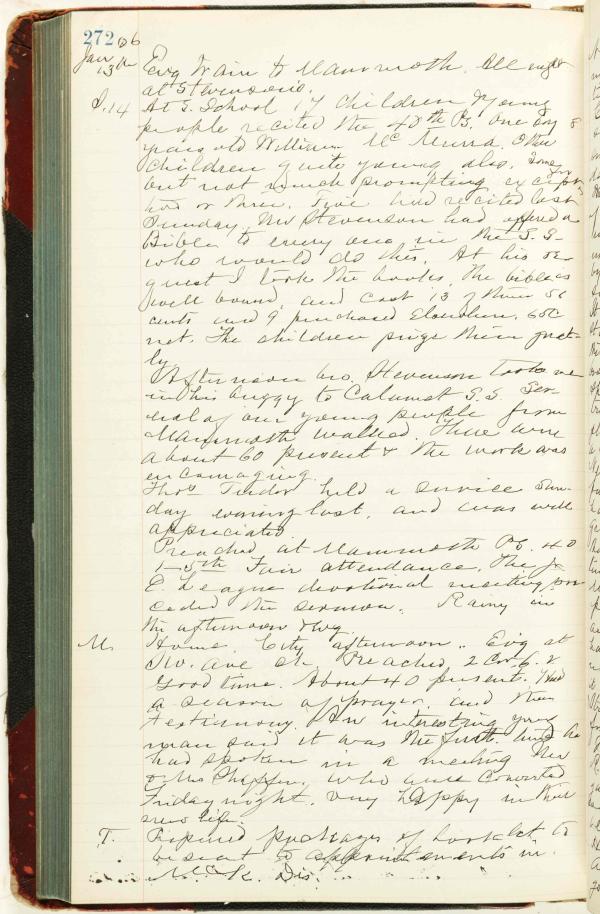 272 06
Jan 13th Evg train to Mammoth. All night
at Stevensons.
S. 14 At S. School 14 children & young
people recited the 40th Ps. one say 8
years old William McMurra. Other
children quite young also. Some
but not much prompting except for
two or three. Five had recited last
Sunday. Mr Stevenson had offered a
Bible to every one in the S.S.
who would do this. At his re-
quest I took the books. The bibles
well bound, and cost 13 of them 56
cents and 9 purchased Elsewhere. 65c
net. The children prize them great-
ly.
Afternoon bro. Stevenson took me
in his buggy to Calumet S.S. Sev-
eral of our young people from
Mammoth walked. There were
about 60 present & the work was
encouraging.
Thos Tudor held a service Sun-
day evening last, and was well
appreciated.
Preached at Mammoth Ps. 40
1-5th Fair attendance. The Jr
E. League devotional meeting pre
ceded the sermon. Rainy in
the afternoon & evg
M. Home. City afternoon. Evg at
Ave ch. Preached 2 Cor. 6.2
Good time. About 40 present. Had
a season of prayer, and then
testimony. An interesting young
man said it was the first time he
had spoken in a meeting. Mr
& Mrs Chaffin. who were converted
Friday night. very happy in their
new life.
T. Prepared packages of booklet to
be sent to appointments in
McK. Dis.